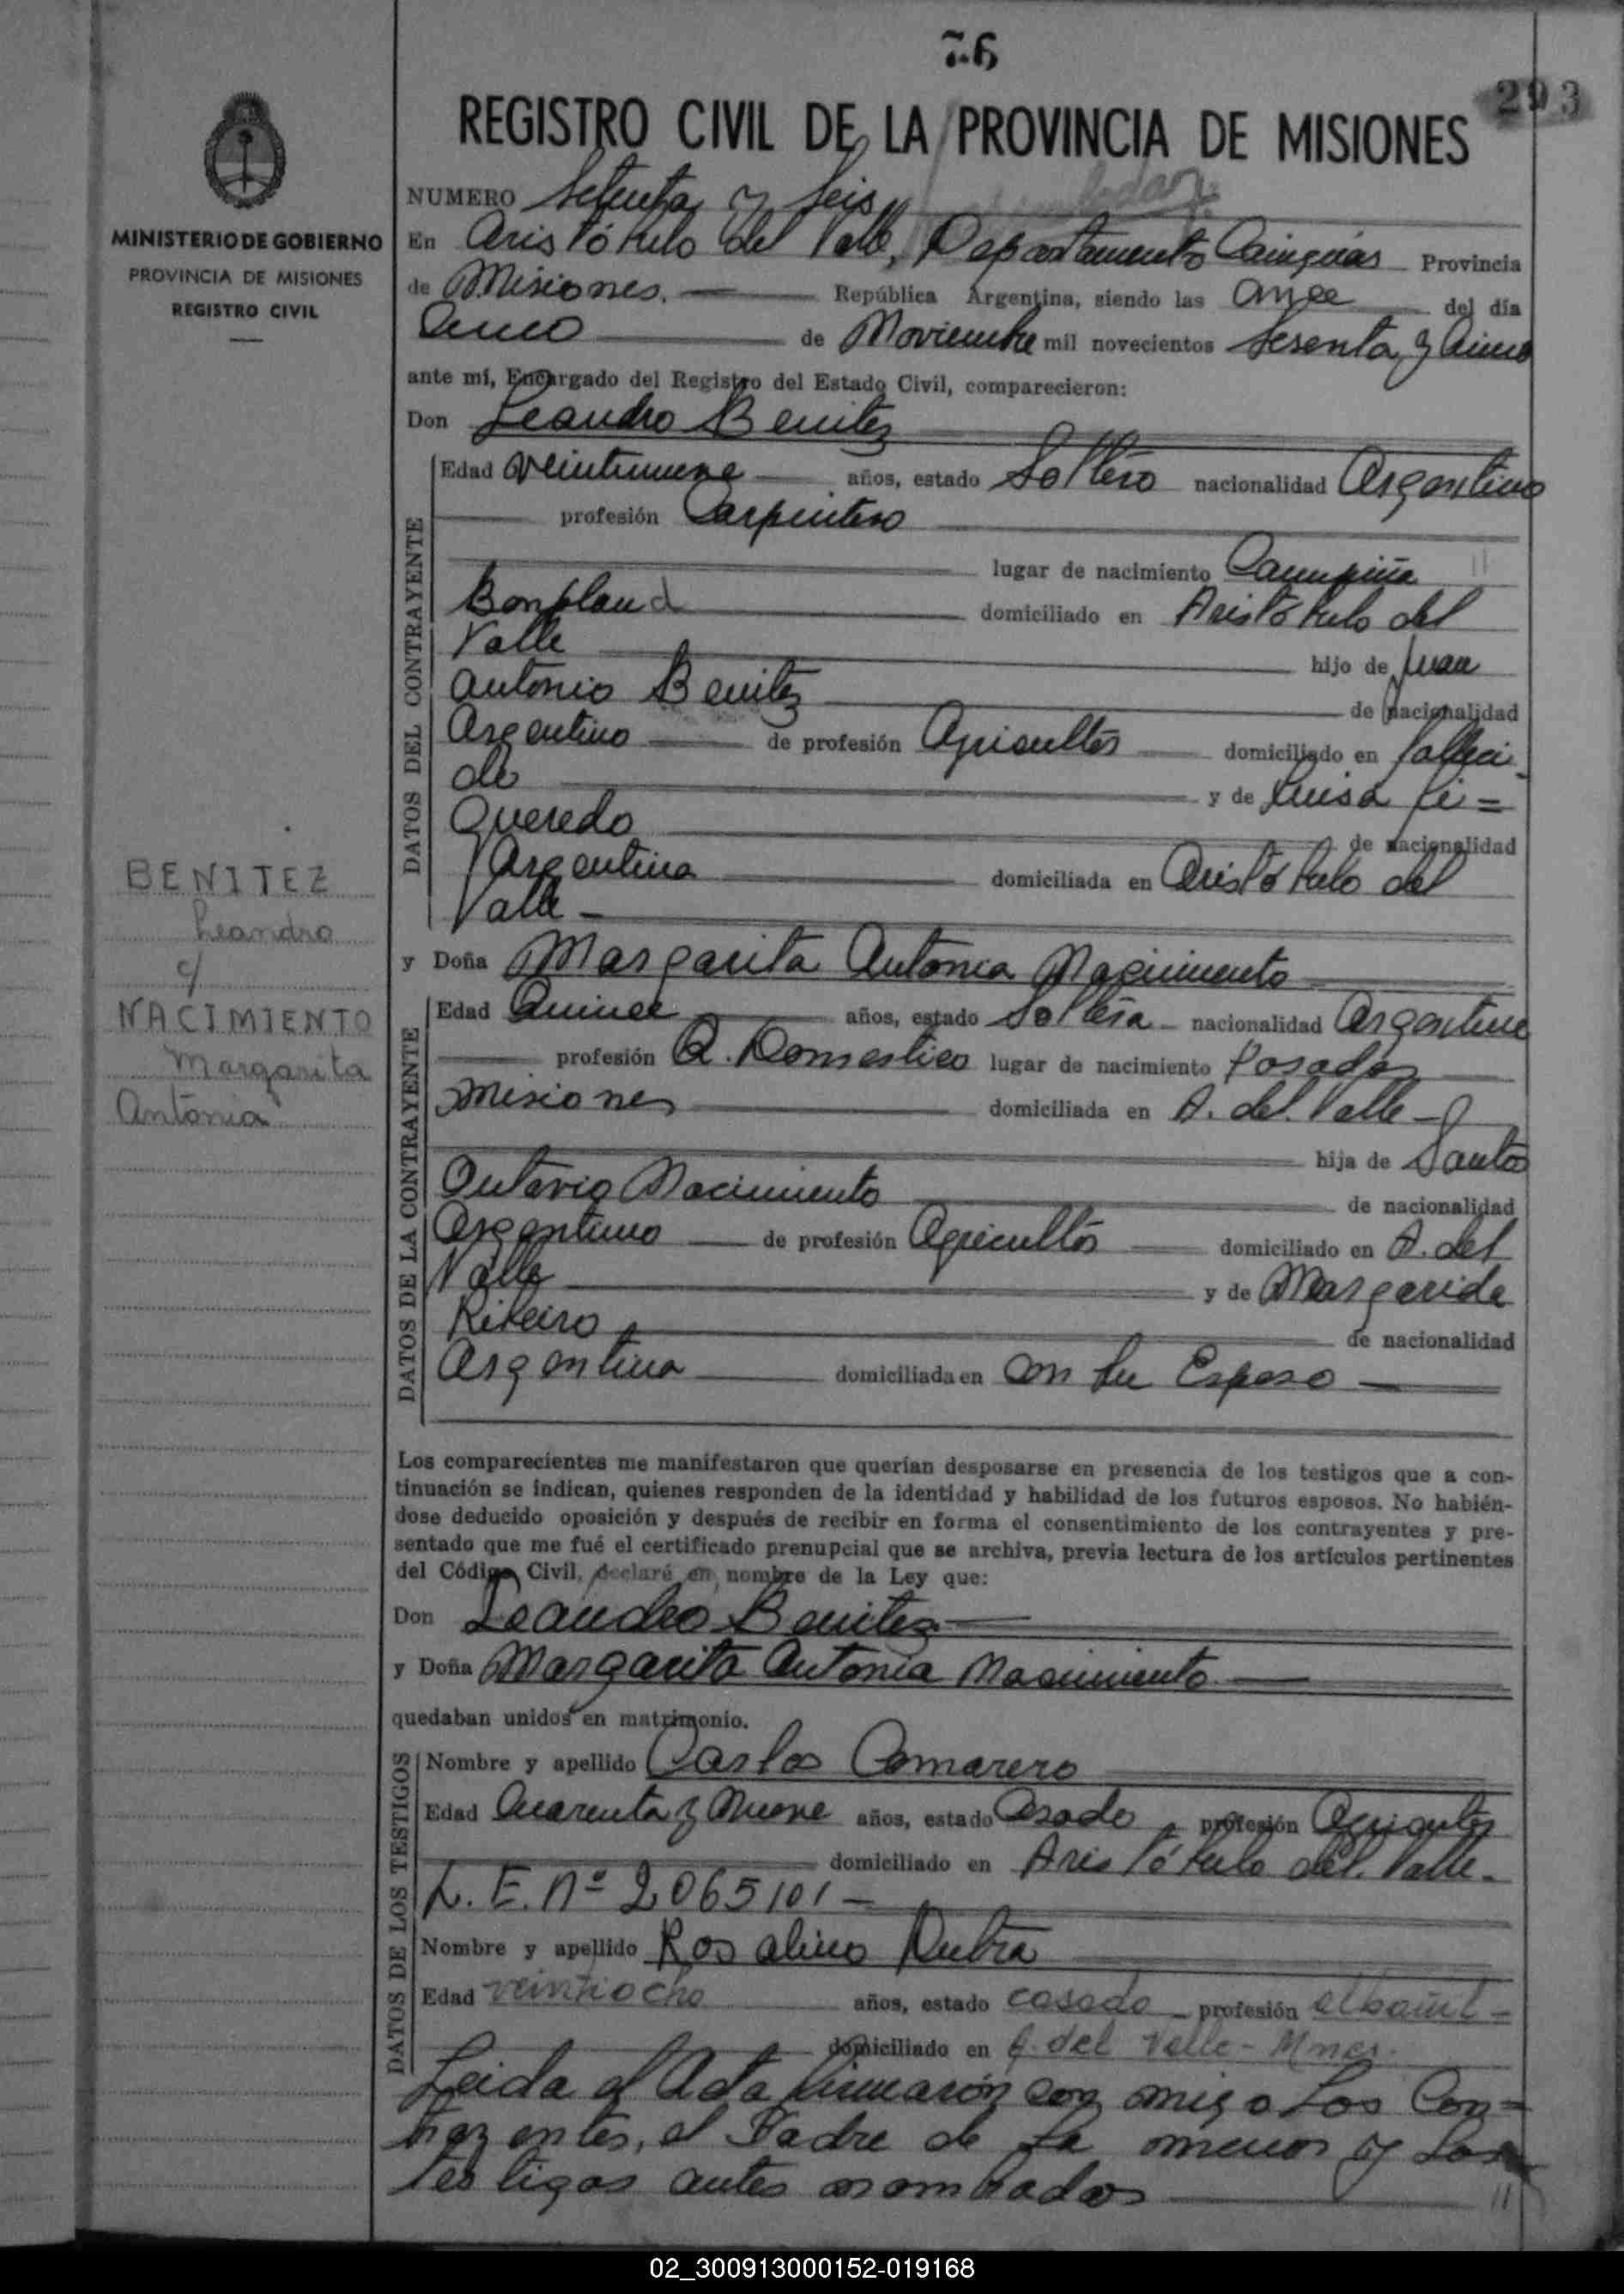 76
293
REGISTRO CIVIL DE LA PROVINCIA DE MISIONES
MINISTERIO DE GOBIERNO
PROVINCIA DE MISIONES
REGISTRO CIVIL
BENITEZ
Leandro
c/
NACIMIENTO
Margarita
Antonia
NUMERO Setenta y Seis
En Aristóbulo del Valle, Departamento Cainguás Provincia
de Misiones. República Argentina, siendo las Once del día
Cinco de Noviembre mil novecientos Sesenta y Cinco
ante mí, Encargado del Registro del Estado Civil, comparecieron:
Don Leandro Benitez
DATOS DEL CONTRAYENTE
Edad Veintinueve años, estado Soltero nacionalidad Argentino
profesión Carpintero
lugar de nacimiento Campiña
Bonpland domiciliado en Aristóbulo del
Valle hijo de Juan
Antonio Benitez de nacionalidad
Argentino de profesión Agricultór domiciliado en falleci-
do y de Luisa Fi=
queredo de nacionalidad
Argentina domiciliada en Aristóbulo del
Valle -
y Doña Margarita Antonia Nacimiento
DATOS DE LA CONTRAYENTE
Edad Quince años, estado Soltera nacionalidad Argentina
profesión Q. Domestico lugar de nacimiento Posadas
Misiones domiciliada en A. del Valle -
hija de Santos
Nacimiento de nacionalidad
Argentino de profesión Agricultór domiciliado en A. del
Valle y de Margarida
Ribeiro de nacionalidad
Argentina domiciliada en Con Su Esposo
Los comparecientes me manifestaron que querían desposarse en presencia de los testigos que a con-
tinuación se indican, quienes responden de la identidad y habilidad de los futuros esposos. No habién-
dose deducido oposición y después de recibir en forma el consentimiento de los contrayentes y pre-
sentado que me fué el certificado prenupcial que se archiva, previa lectura de los artículos pertinentes
del Código Civil, declaré en nombre de la Ley que:
Don Leandro Benitez
y Doña Margarita Antonia Nacimiento
quedaban unidos en matrimonio.
DATOS DE LOS TESTIGOS
Nombre y apellido Carlos Camarero
Edad Cuarenta y Nueve años, estado Casado profesión Agricultor
domiciliado en Aristóbulo del Valle -
L. E. Nº 2065101 -
Nombre y apellido Rosalino Dutra
Edad veintiocho años, estado casado profesión albañil -
domiciliado en A. del Valle - Mnes.
Leida el Acta firmarón con migo Los Con=
trayentes, el Padre de la menor y Los
testigos antes nombrados
02_300913000152-019168